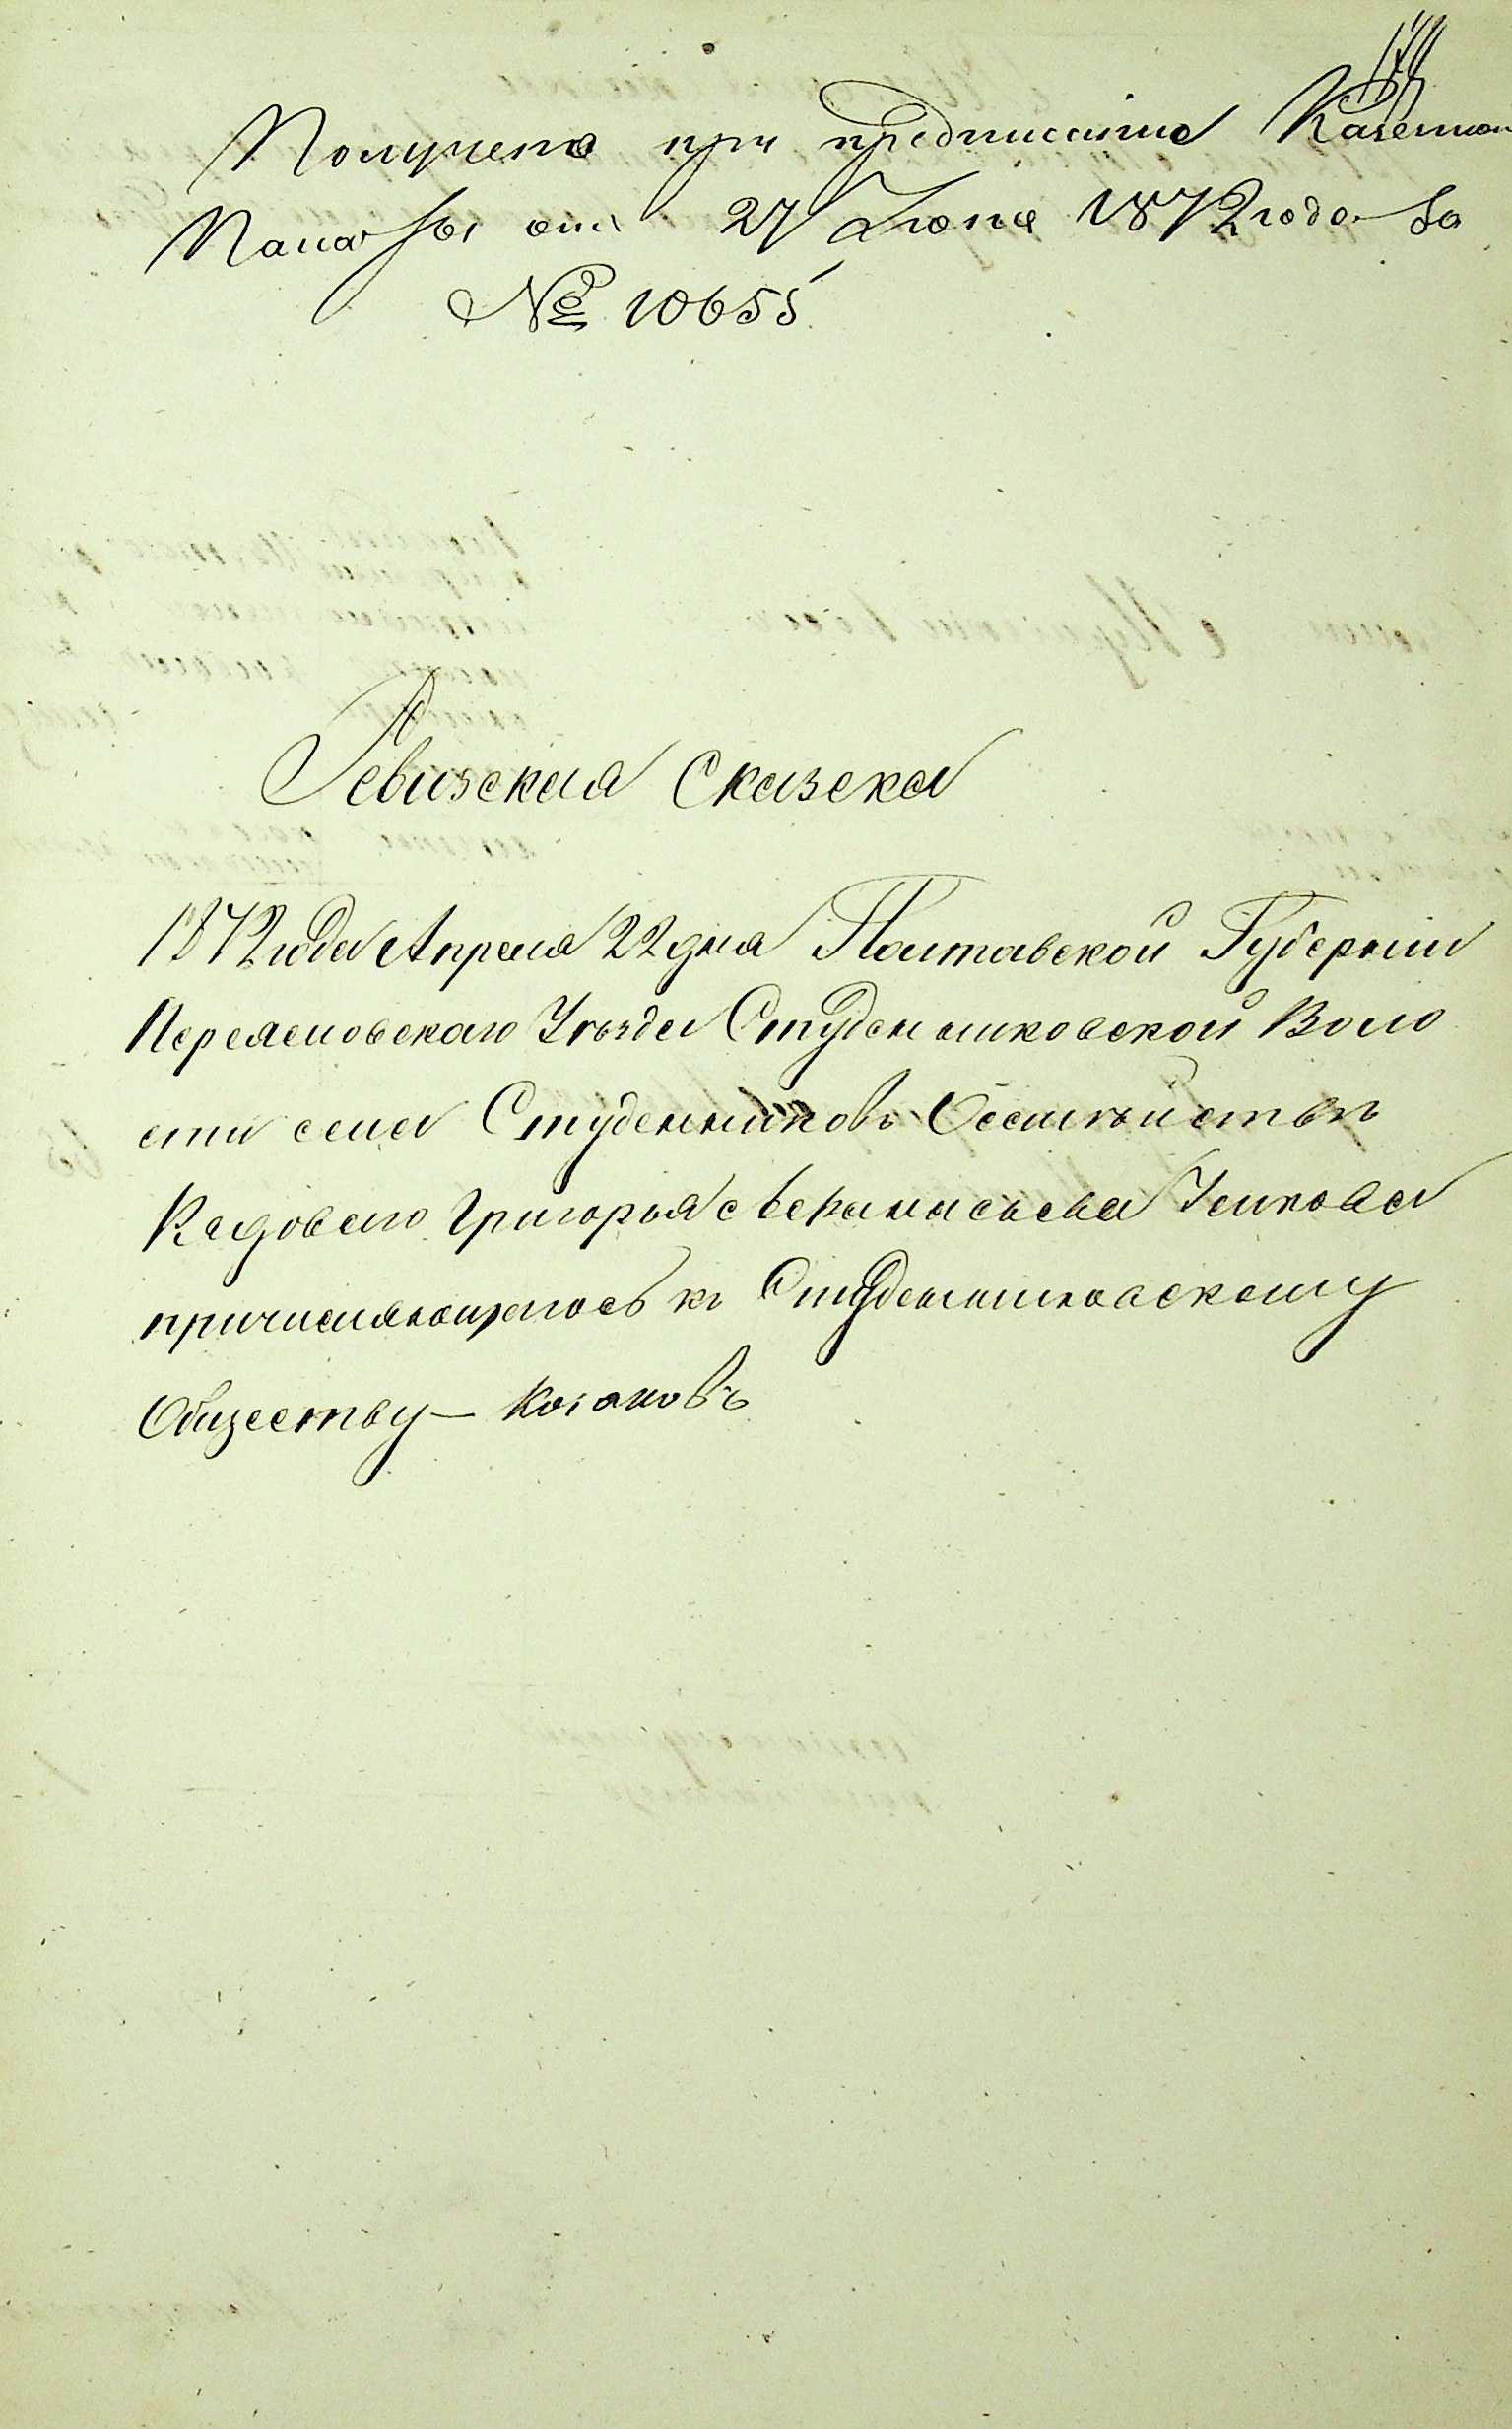 Получено при предписаніи Казенной
Палаты отъ 27 Іюня 1872 года за
№ 10655
Ревизская Сказска
1872 года Апреля 22 дня Полтавской Губерніи
Переяславскаго Уезда Студениковской Воло
сти села Студениковъ О семействѣ
Рядоваго Григорья
причисляющагось къ Студениковскому
Обществу — козаковъ